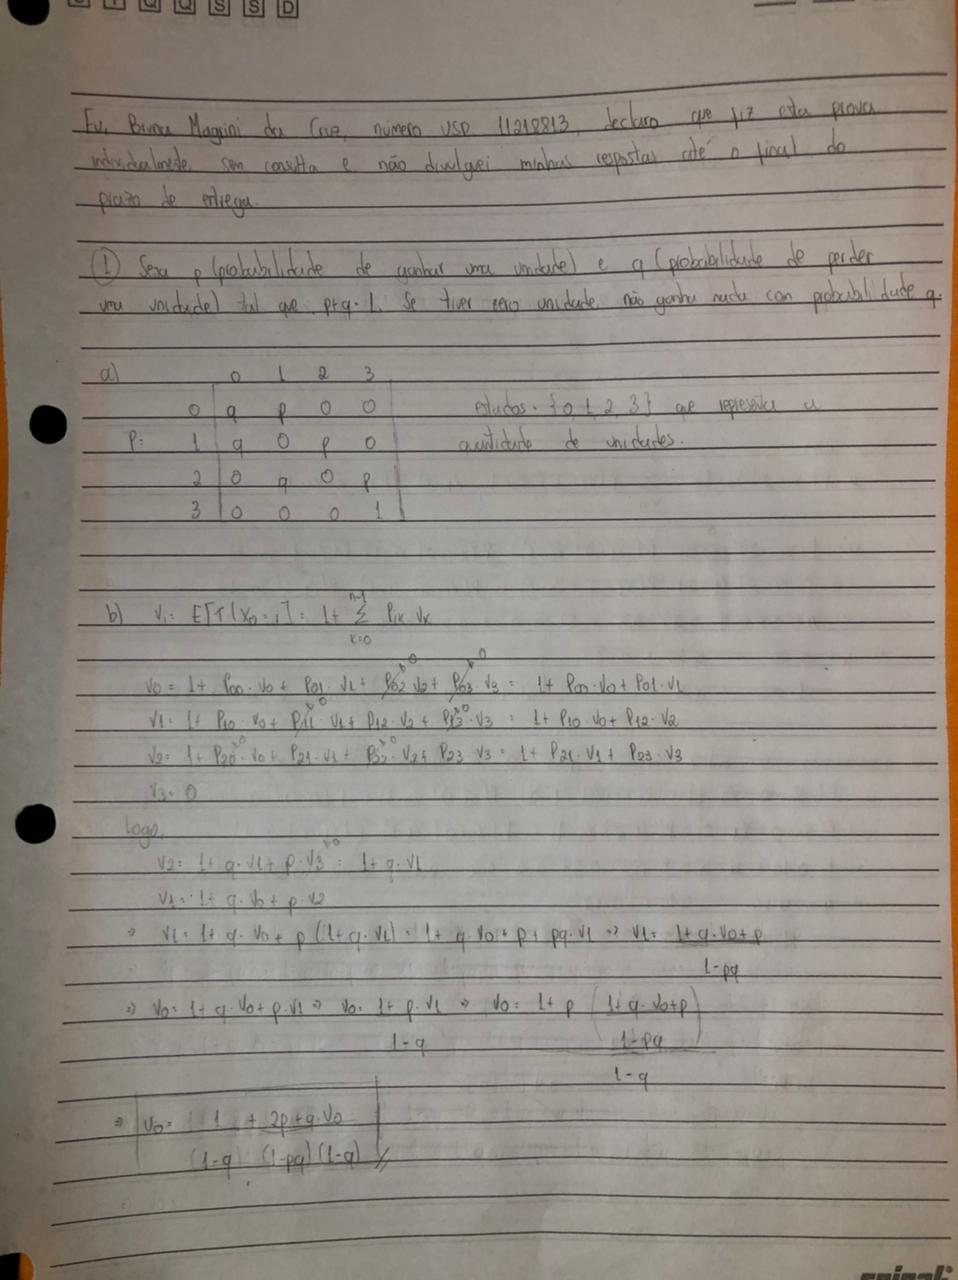 S T Q Q S S D
Eu, Bruna Magrini da Cruz, número USP 11218813, declaro que fiz esta prova
individualmente, sem consulta e não divulguei minhas respostas até o final do
prazo de entrega.
① Seja p (probabilidade de ganhar uma unidade) e q (probabilidade de perder
uma unidade) tal que p+q=1. Se tiver zero unidade não ganha nada com probabilidade q.
a) 0 1 2 3
0 q p 0 0 estados = {0, 1, 2, 3} que representa a
P= 1 q 0 p 0 quantidade de unidades.
2 0 q 0 p
3 0 0 0 1
b) Vi = E[T|X0=i] = 1 + n-1 Σ k=0 Pik Vk
V0 = 1 + P00·V0 + P01·V1 + P02·V2 + P03·V3 = 1 + P00·V0 + P01·V1
V1 = 1 + P10·V0 + P11·V1 + P12·V2 + P13·V3 = 1 + P10·V0 + P12·V2
V2 = 1 + P20·V0 + P21·V1 + P22·V2 + P23·V3 = 1 + P21·V1 + P23·V3
V3 = 0
Logo,
V2 = 1 + q·V1 + p·V3 = 1 + q·V1
V1 = 1 + q·V0 + p·V2
⇒ V1 = 1 + q·V0 + p(1+q·V1) = 1 + q·V0 + p + pq·V1 ⇒ V1 = 1+q·V0+p
1-pq
⇒ V0 = 1 + q·V0 + p·V1 ⇒ V0 = 1 + p·V1 ⇒ V0 = 1 + p (1+q·V0+p)
1-q 1-pq
1-q
⇒ V0 = 1 + 2p+q·V0
(1-q) (1-pq)(1-q) //
spiral